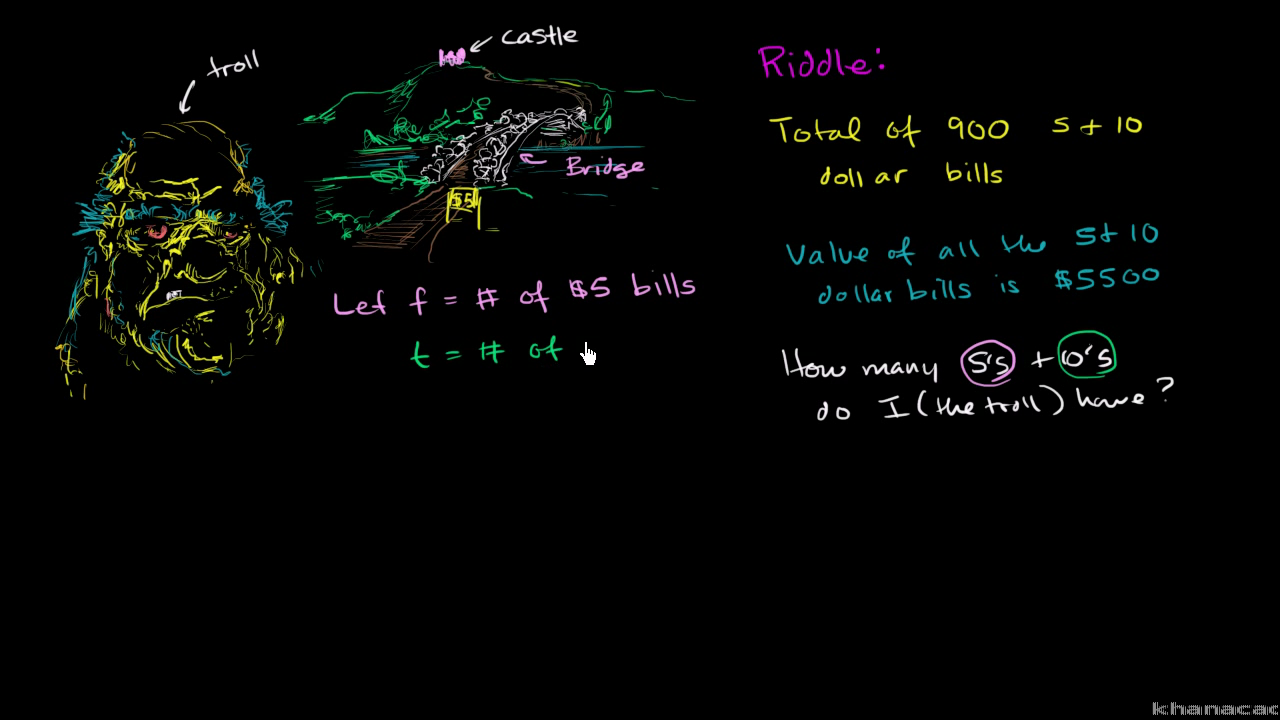 troll
castle
Bridge
$5
Let f = # of $5 bills
t = # of
Riddle:
Total of 900 5 + 10
dollar bills
Value of all the 5 + 10
dollar bills is $5500
How many 5's + 10's
do I (the troll) have?
khanacad